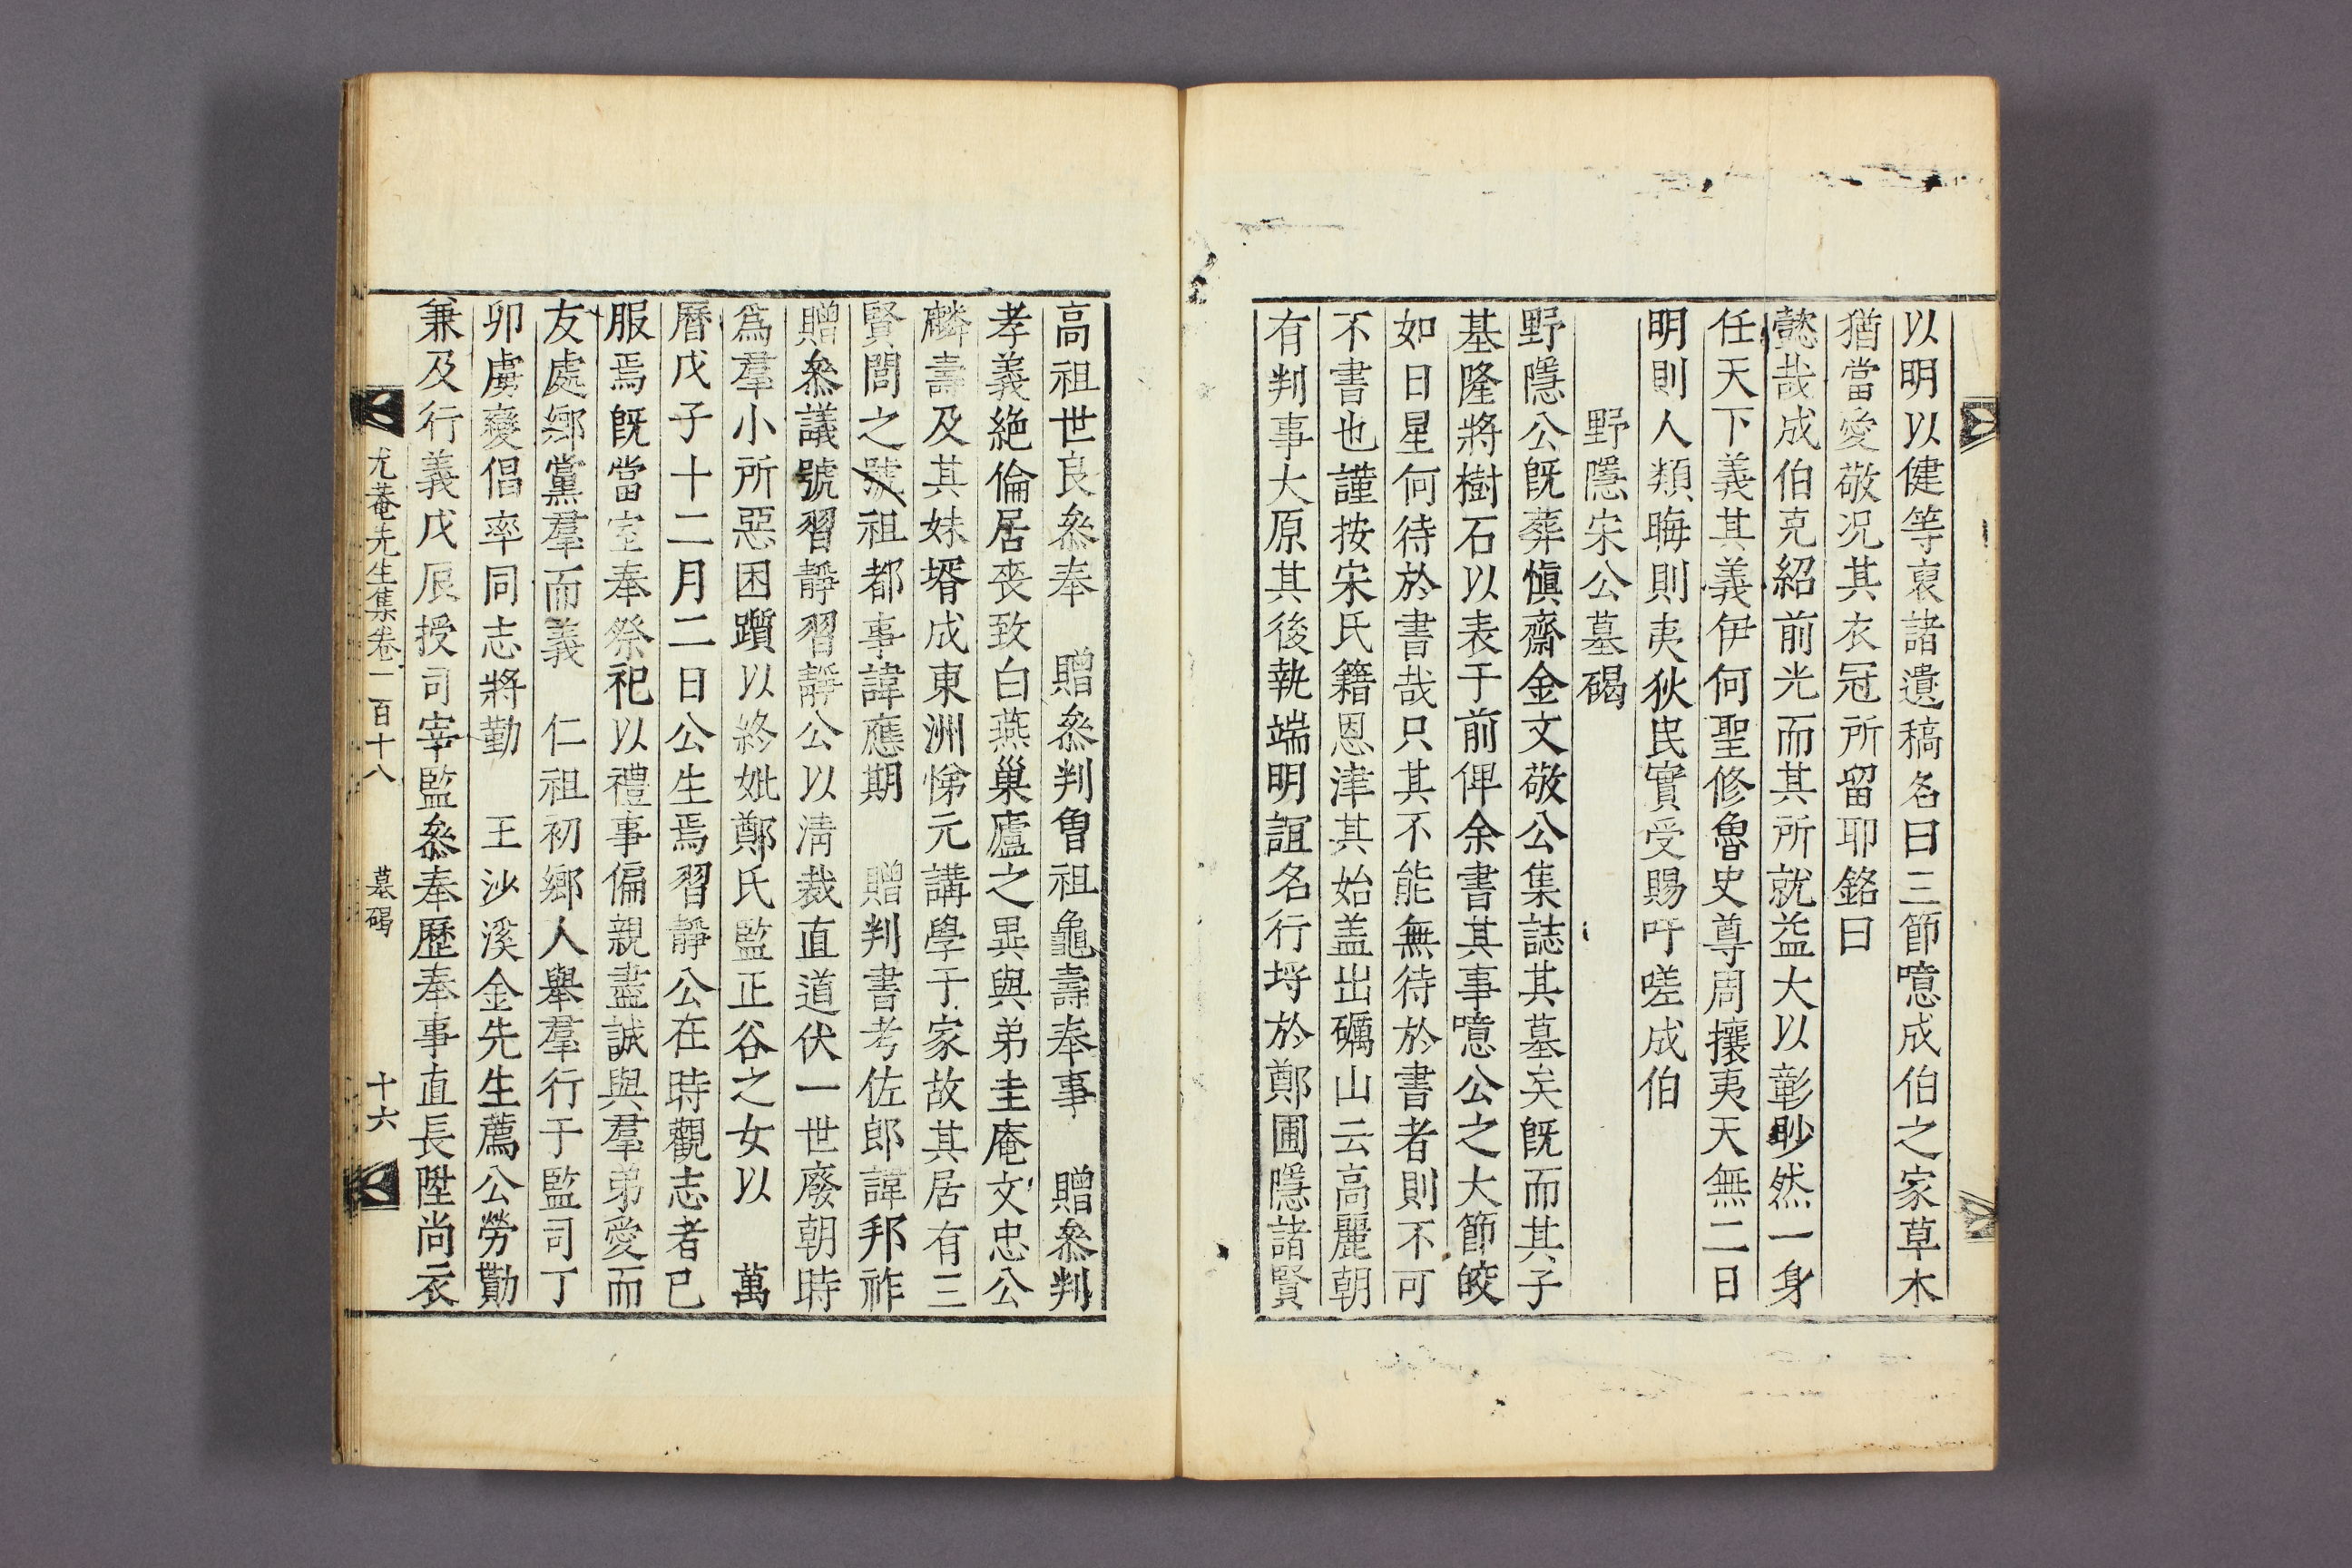 以明以健等裒諸遺稿名曰三節噫成伯之家草木
猶當愛敬况其衣冠所留耶銘曰
懿哉成伯克紹前光而其所就益大以彰眇然一身
任天下義其義伊何聖修魯史尊周攘夷天無二日
明則人類晦則夷狄民實受賜吁嗟成伯
野隱宋公墓碣
野隱公旣葬愼齋金文敬公集誌其墓矣旣而其子
基隆將樹石以表于前俾余書其事噫公之大節皎
如日星何待於書哉只其不能無待於書者則不可
不書也謹按宋氏籍恩津其始盖出礪山云高麗朝
有判事大原其後執端明誼名行埒於鄭圃隱諸賢
高祖世良叅奉　贈叅判曾祖龜壽奉事　贈叅判
孝義絶倫居喪致白燕巢廬之異與弟圭庵文忠公
麟壽及其妹壻成東洲悌元講學于家故其居有三
賢閭之號祖都事諱應期　贈判書考佐郎諱邦祚
贈叅議號習靜習靜公以淸裁直道伏一世廢朝時
爲羣小所惡困躓以終妣鄭氏監正谷之女以　萬
曆戊子十二月二日公生焉習靜公在時觀志者已
服焉旣當室奉祭祀以禮事偏親盡誠與羣弟愛而
友處鄉黨羣而義　仁祖初鄉人舉羣行于監司丁
卯虜變倡率同志將勤　王沙溪金先生薦公勞勩
兼及行義戊辰授司宰監叅奉歷奉事直長陞尚衣
尤菴先生集卷一百十八　墓碣　十六